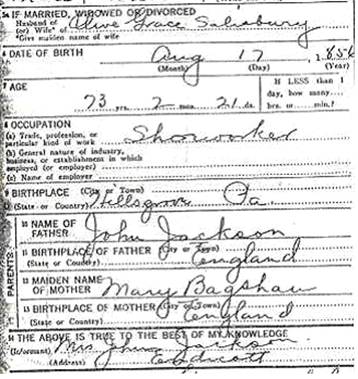 5A IF MARRIED, WIDOWED OR DIVORCED
Husband of
(or) Wife of Olive Grace Salisbury
*Give maiden name of wife
6 DATE OF BIRTH Aug 17, 1856
(Month) (Day) (Year)
7 AGE IF LESS than 1
day, how many
73 yrs. 2 mos. 21 ds. hrs. or min.?
8 OCCUPATION
(a) Trade, profession, or
particular kind of work Shoeworker
(b) General nature of industry,
business, or establishment in which
employed (or employer)
(c) Name of employer
9 BIRTHPLACE (City or Town)
(State or Country) Hillsgrove Pa
10 NAME OF
FATHER John Jackson
11 BIRTHPLACE OF FATHER (City or Town)
(State or Country) England
12 MAIDEN NAME
OF MOTHER Mary Bagshaw
13 BIRTHPLACE OF MOTHER (City or Town)
(State or Country) England
PARENTS
14 THE ABOVE IS TRUE TO THE BEST OF MY KNOWLEDGE
(Informant) Mrs John Jackson
(Address) Endicott